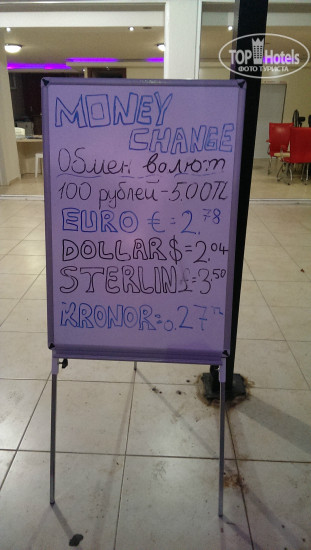 TOP Hotels
ФОТО ТУРИСТА
MONEY
CHANGE
Обмен волют
100 рублей - 5.00TL
EURO € = 2,78
DOLLAR $ = 2,04
STERLIN £ = 3,50
KRONOR = 0,27